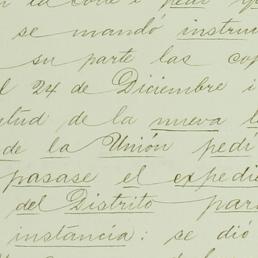 la Corte i pedí q
se mandó instru
su parte las cop
l 24 de Diciembre i
etud de la nueva l
de la Unión pedí
pasase el expedi
del Distrito par
instancia: se dió